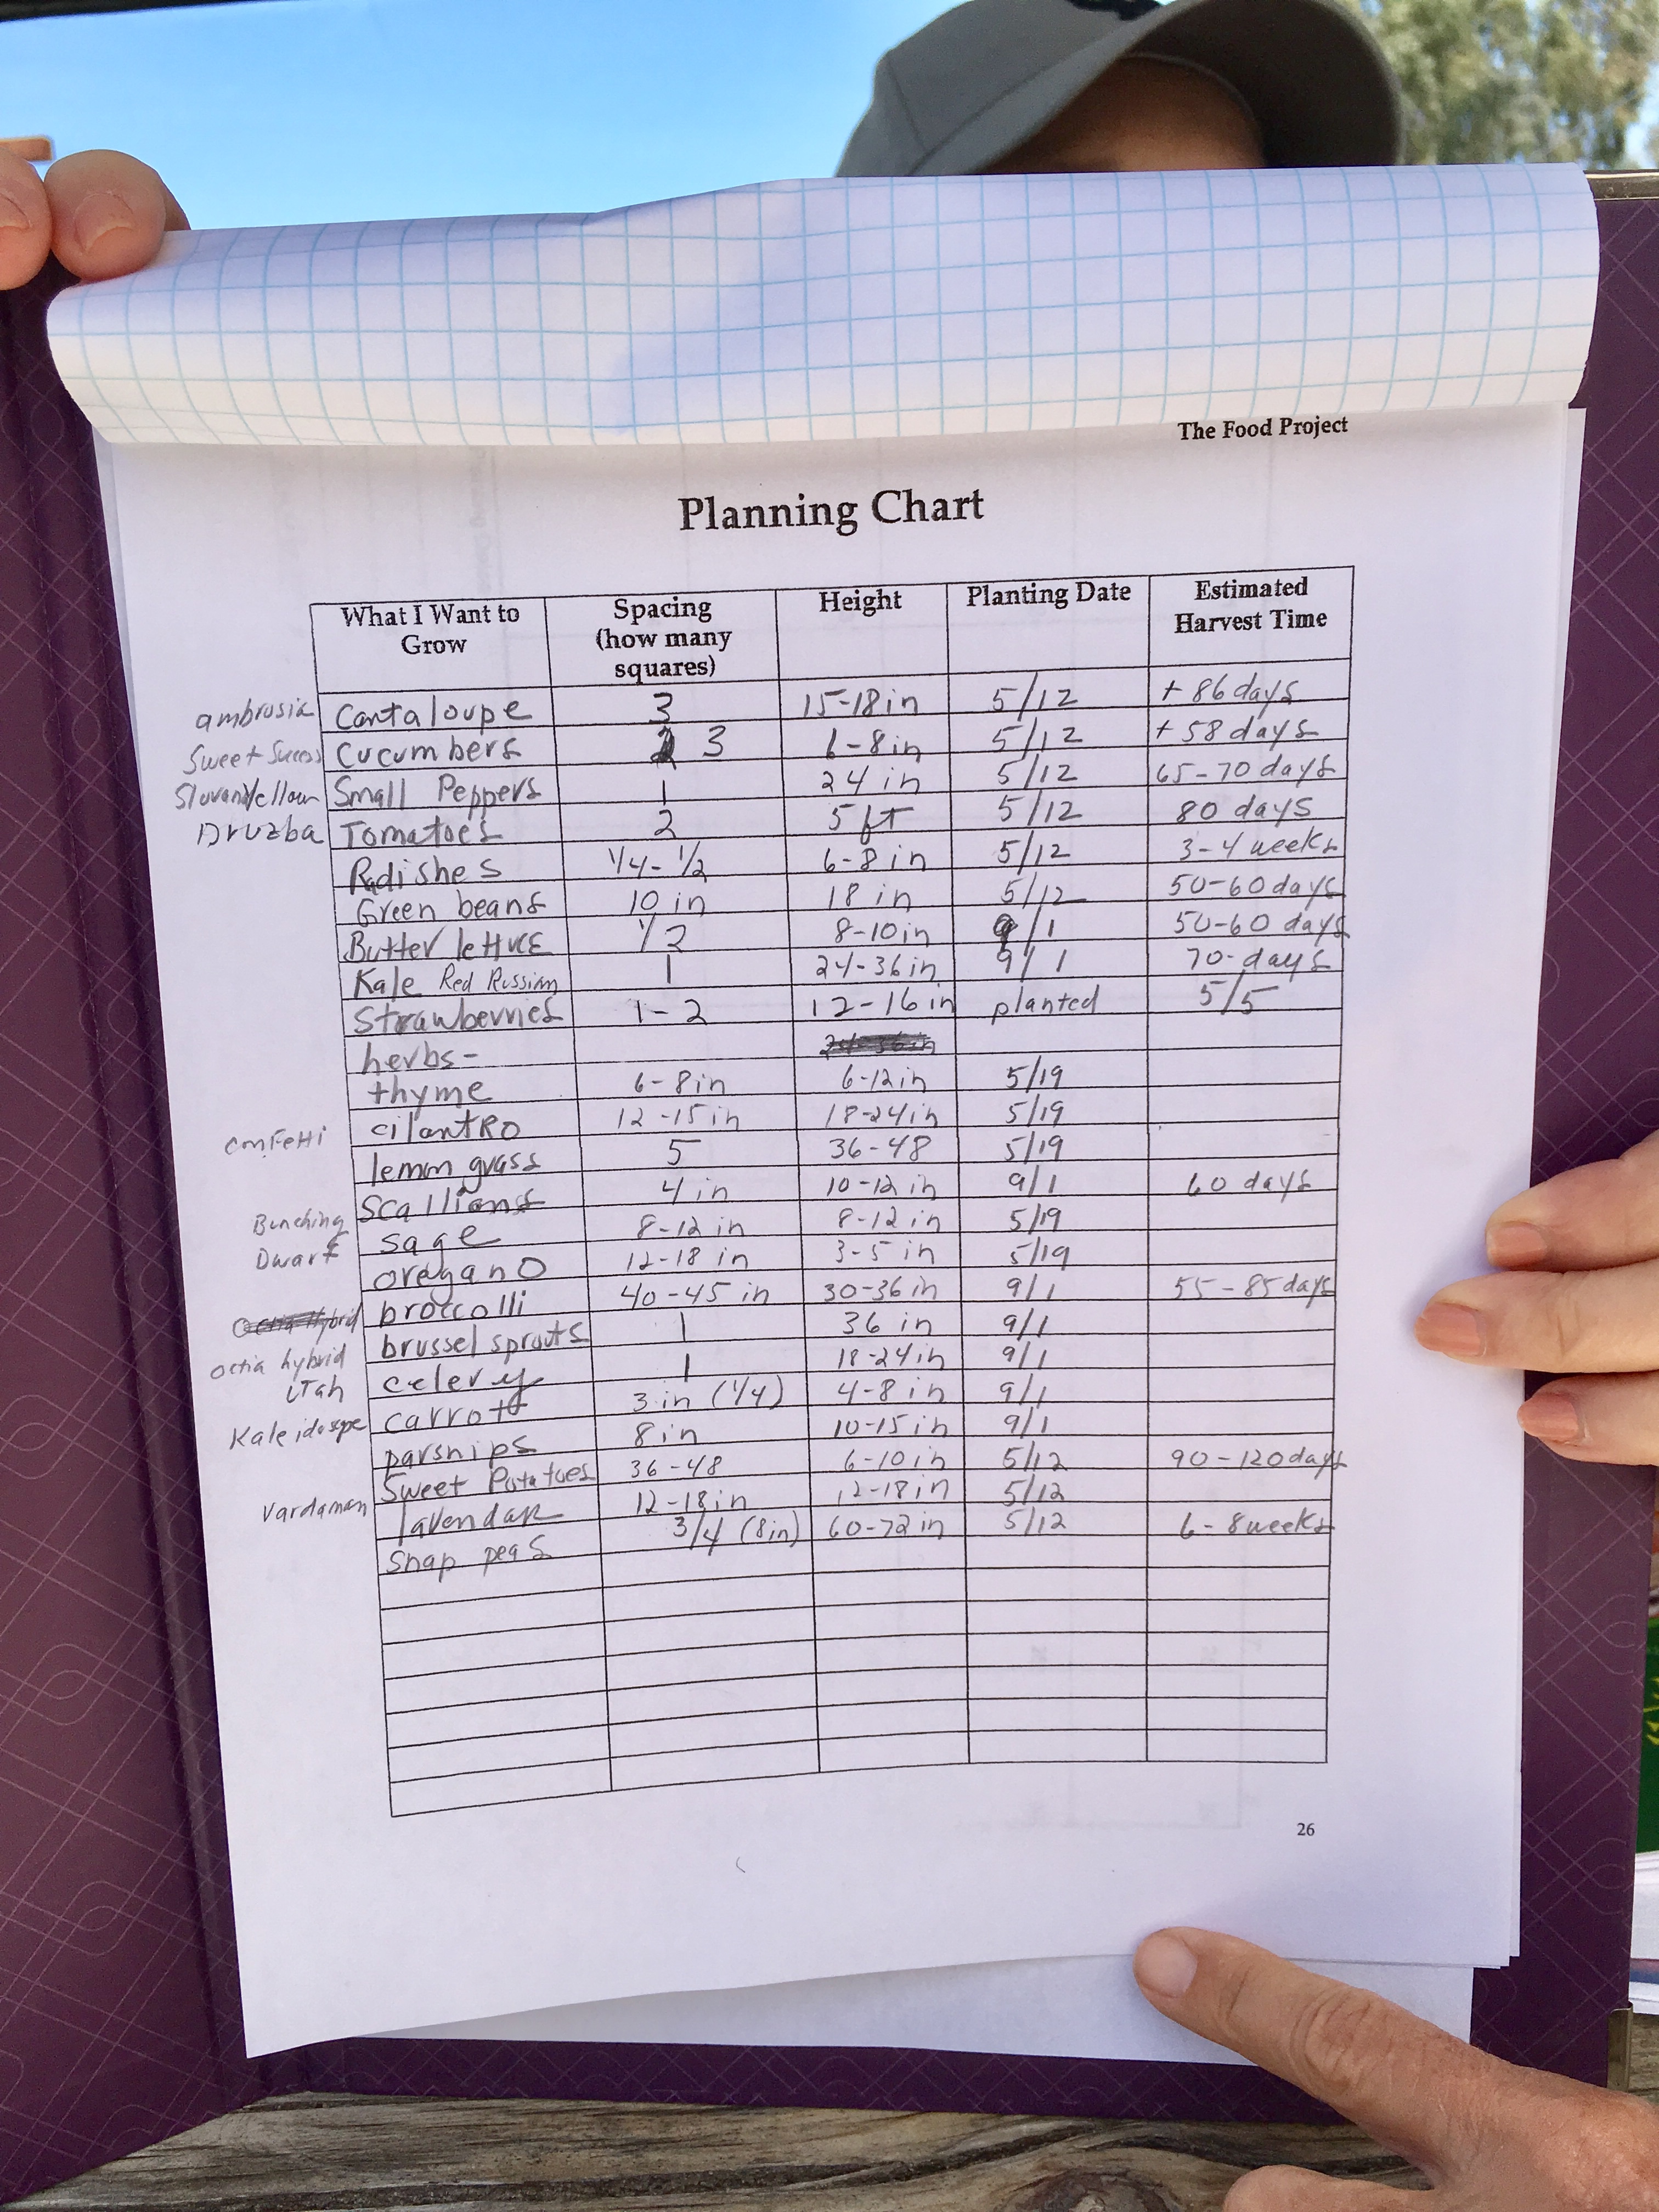 The Food Project
Planning Chart
What I Want to Grow Spacing (how many squares) Height Planting Date Estimated Harvest Time
ambrosia Cantaloupe 3 15-18 in 5/12 + 86 days
Sweet Success Cucumbers 3 6-8 in 5/12 + 58 days
Yellow Small Peppers 1 24 in 5/12 65-70 days
Druzba Tomatoes 2 5 ft 5/12 80 days
Radishes 1/4-1/2 6-8 in 5/12 3-4 weeks
Green beans 10 in 18 in 5/12 50-60 days
Butter lettuce 1/2 8-10 in 9/1 50-60 days
Kale Red Russian 1 24-36 in 9/1 70-days
Strawberries 1-2 12-16 in planted 5/5
herbs- 24-36 in
thyme 6-8 in 6-12 in 5/19
confetti cilantro 12-15 in 18-24 in 5/19
lemon grass 5 36-48 5/19
Scallions 4 in 10-12 in 9/1 60 days
Bunching sage 8-12 in 8-12 in 5/19
Dwarf oregano 12-18 in 3-5 in 5/19
Octia Hybrid broccolli 40-45 in 30-36 in 9/1 55-85 days
octia hybrid brussel sprouts 1 36 in 9/1
UTah celery 1 18-24 in 9/1
Kaleidospe carrots 3 in (1/4) 4-8 in 9/1
parsnips 8 in 10-15 in 9/1
Vardaman Sweet Potatoes 36-48 6-10 in 5/12 90-120 days
lavendar 12-18 in 12-18 in 5/12
Snap peas 3/4 (8in) 60-72 in 5/12 6-8 weeks
26